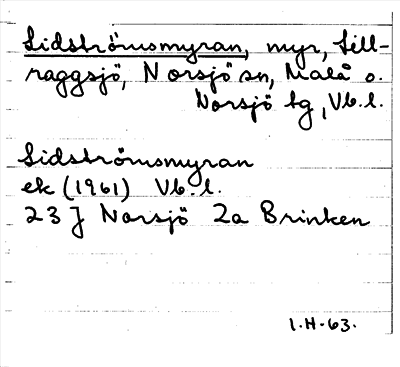 Lidströmsmyran, myr, Lill-
raggsjö, Norsjö sn, Malå o.
Norsjö tg, Vb.l.
Lidströmsmyran
ek (1961) Vb.l.
23 J Norsjö 2a Brinken
I.H-63.